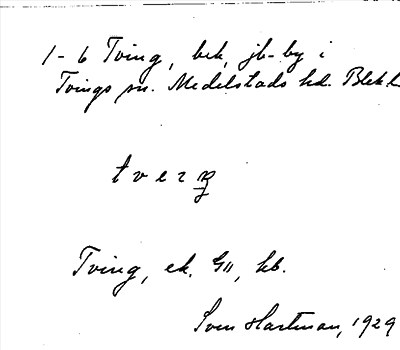 1-6 Tving, bek, jb-by i
Tvings sn. Medelstads hd. Blek l.
Tving, ek. GII, kb.
Sven Hartman, 1929